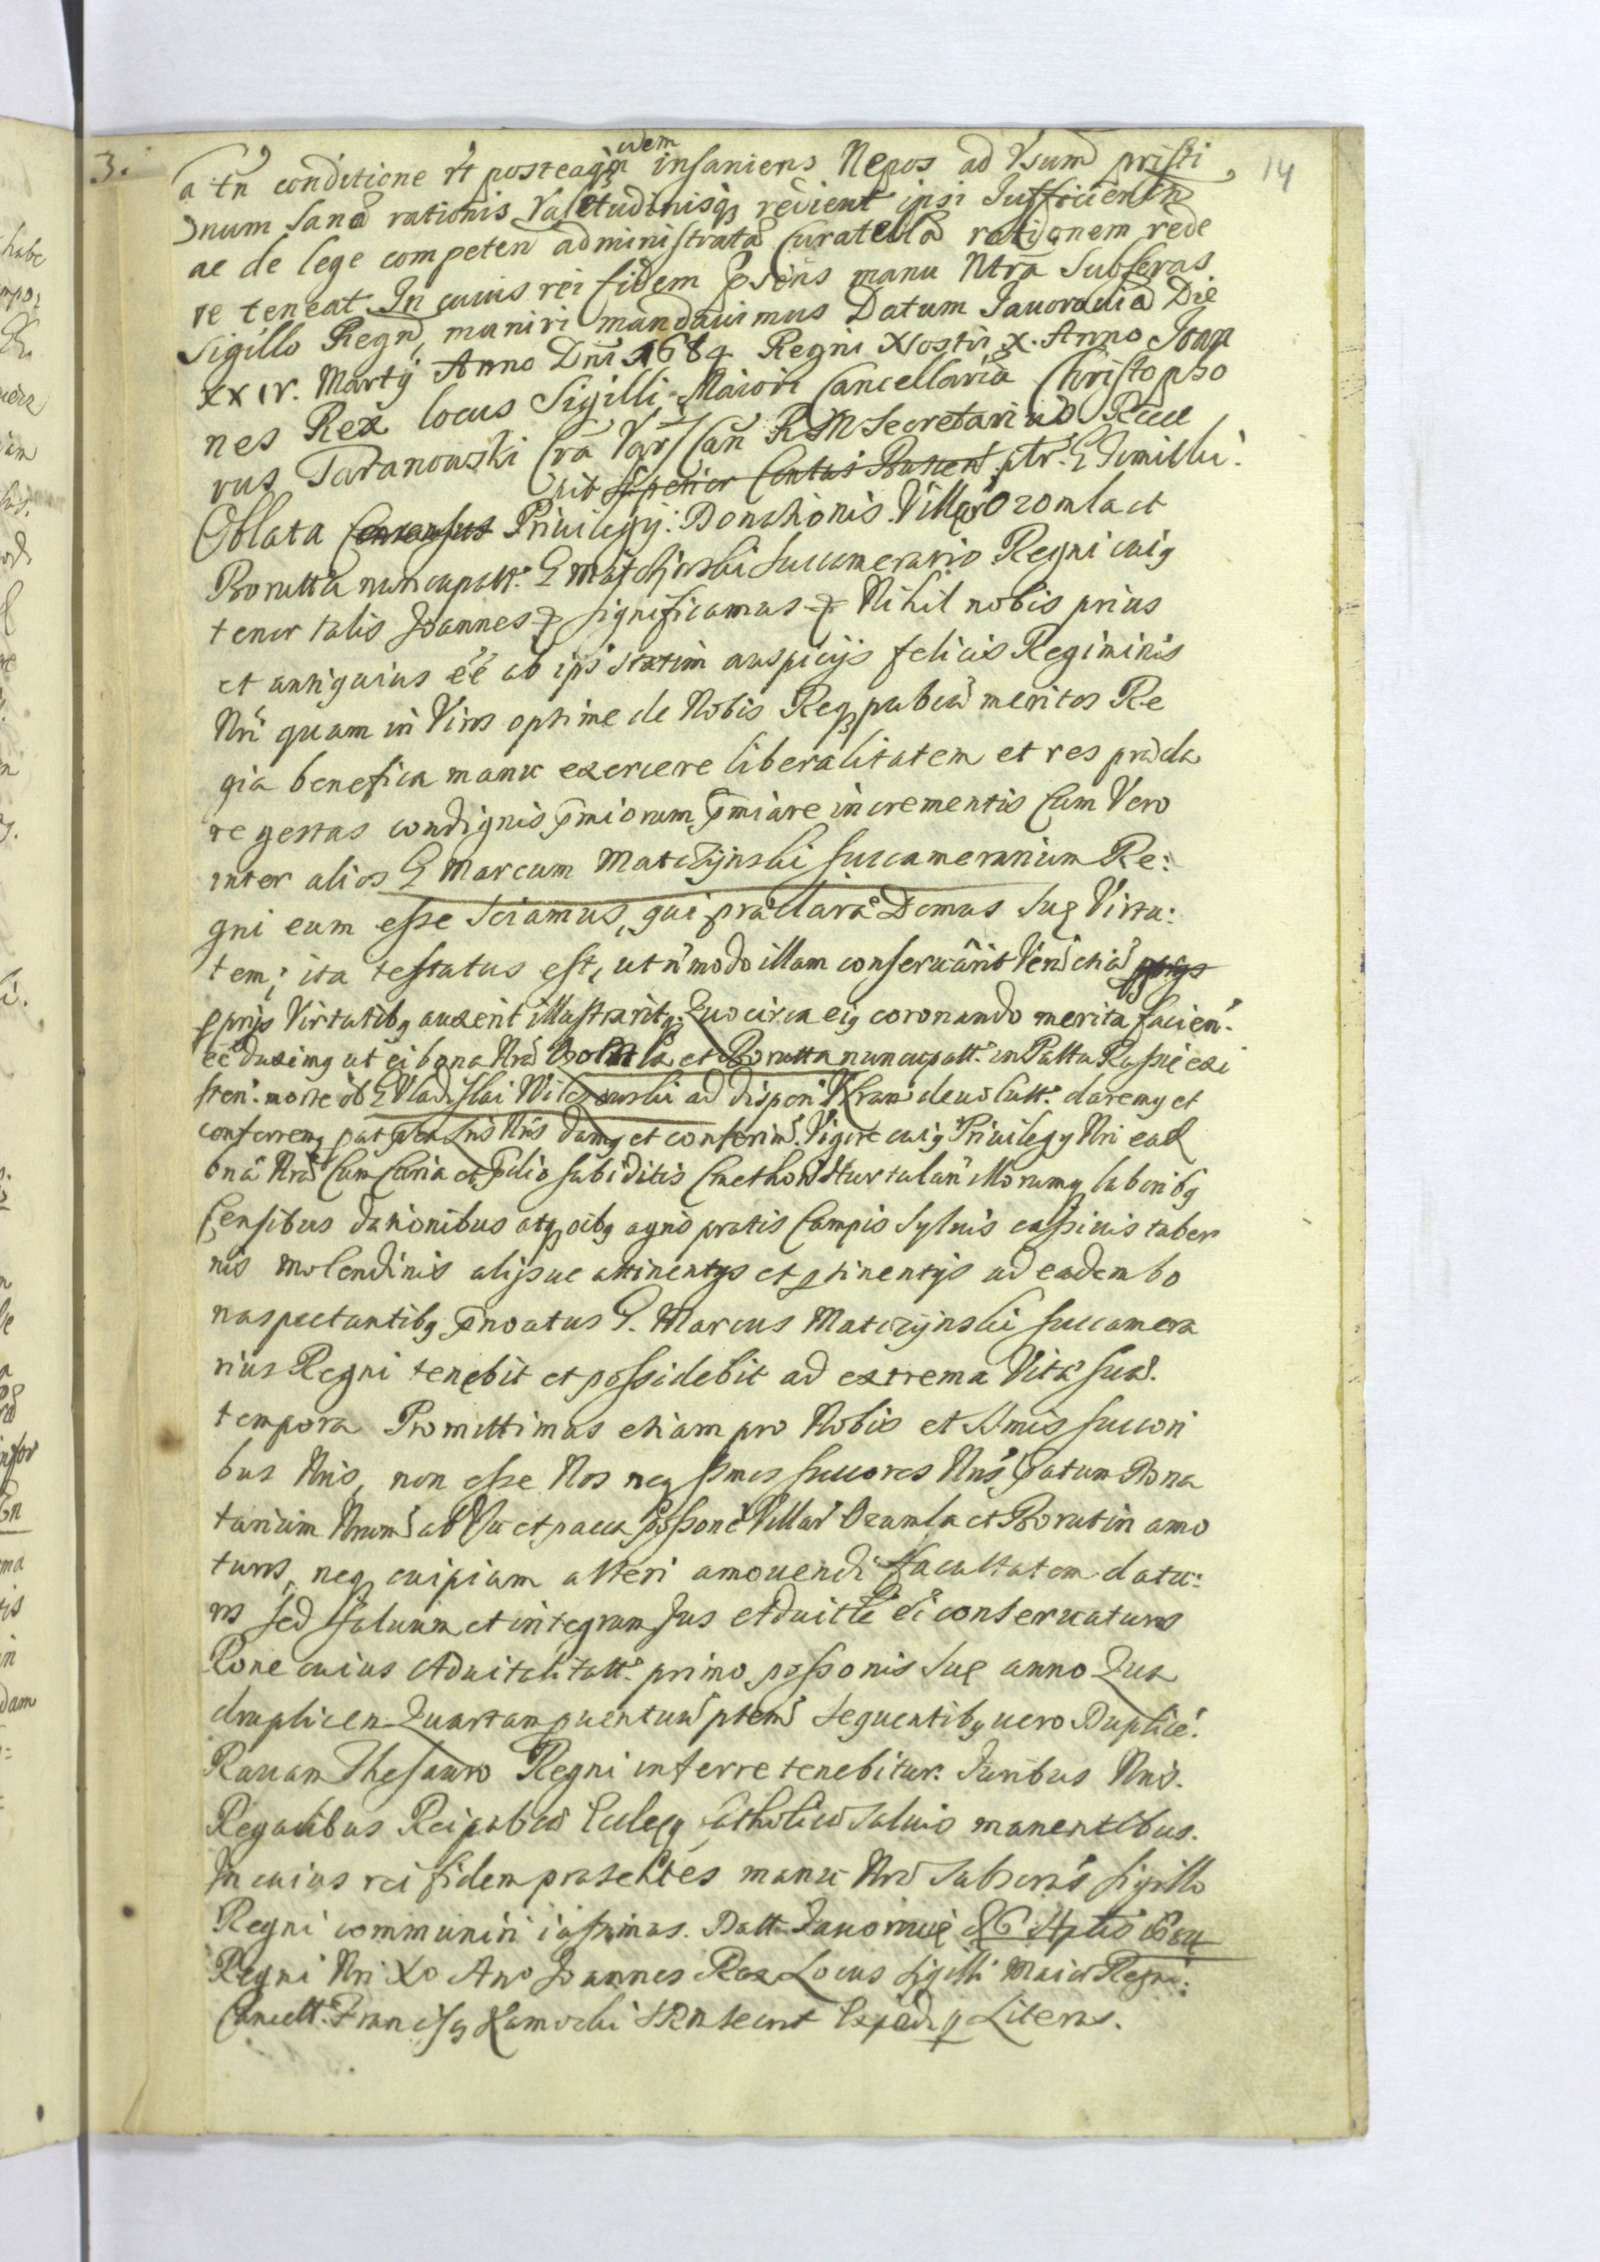 3.
14
a tn conditione vt posteaqm idem insaniens Nepos ad Vsum pristi
num Sanæ rationis Valetudinisq redient ipsi Sufficien
ac de lege competen administratæ Curatellæ rationem rede
re teneat. In cuius rei fidem psens manu Ntra Subscras
Sigillo Regni muniri mandauimus Datum Jauorauiæ Die
xxiv. Martij Anno Dni 1684 Regni Nostri X. Anno Joan
nes Rex locus Sigilli Maioris Cancellariæ Christopho
rus Taranowski Cra Var Can R M Secretarius Rece
pit ptr. G Semillu.
Oblata Privilegij: Donationis. Villar Ozomla et
Borutta nuncupatt. G Matczÿnski Succamerario Regni cuig
tenor talis Joannes significamus Nihil nobis prius
et antiquius ēē ab ips statim auspicijs felicis Regiminis
Nri quam in Viros optime de Nobis Reqpubca meritos Re
gia benefica manu exercere liberalitatem et res præcla
re gestas condignis pmiorum pmiare incrementis Cum Vero
inter alios G Marcum Matczÿnski Succamerarium Re:
gni eum esse Sciamus, qui præclaræ Domus Suæ Virtu:
tem; ita testatus est, ut n modo illam conseruarit Verum etia
pprijs Virtutibq auxerit illustraritq. Quocirca eig coronando merita facien.
ēē duximg ut ei bona Nra Ozomla et Borutta nuncupatt. in Pallu Russie exi
sten. morte ol. G Vladislai Wilczowski ad dispon Nram deuolutt. daremg et
conferremg Nris damg et conferimg. Vigore cuig Priuilegij Nri ead
bna Nra Cum Curia et Prædio subditis Cmethon Hortulan illorumq laboribq
Censibus dationibus atq oibq agris pratis Campis Syluis cassinis taber
nis Molendinis alijsue attinentijs et ptinentijs ad eadem bo
naspectantibq pnoatus G. Marcus Matczÿnski Succamera
rius Regni tenebit et possidebit ad extrema Vitæ Suæ.
tempora Promittimus etiam pro Nobis et Srnis Succori
bus Nris, non esse Nos neq Srnos Succores Nros Datum Dona
tarium Nrum ab Vsu et paca possone Villar Ozomla et Borutin amo
turos, neq cuipiam alteri amouendi facultatem datu:
ros sed saluum et integrum Jus Aduitle ei conseruaturos
Rone cuius Aduitalitatt. primo possonis Suæ anno Qua
druplicen Quartam puentuu ptem sequentibq uero Duplice.
Rauam Thesauro Regni inferre tenebitur. Juribus Nris.
Regalibus Reipubca Eccleq Catholicæ Saluis manentibus.
In cuius rei fidem præsentes manu Nra Subscras Sigillo
Regni communiri iussimus. Datt. Jauorauię
Regni Nri Xo Ano Joannes Rex Locus Sigilli Maior Regni.
Cancell. Franciscg Expedi Literas.